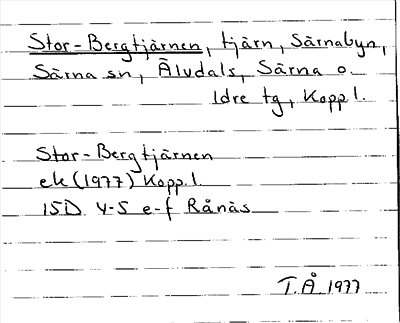 Stor-Bergtjärnen, tjärn, Särnabyn,
Särna sn, Älvdals, Särna o.
Idre tg, Kopp l.
Stor-Bergtjärnen
ek (1977) Kopp. l.
15D 4-5 e-f Rånäs
T.Å. 1977